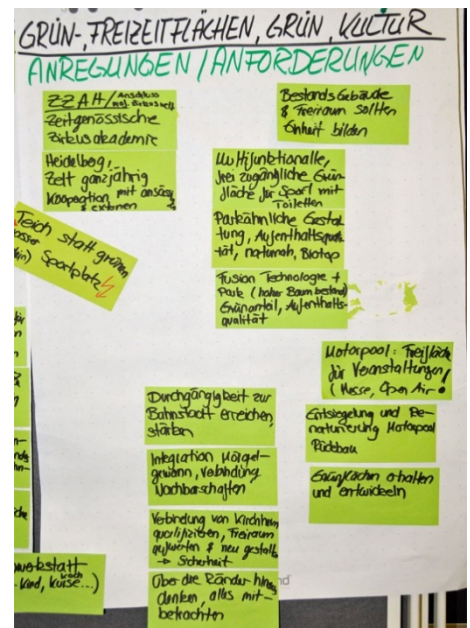 GRÜN-, FREIZEITFLÄCHEN, GRÜN, KULTUR
ANREGUNGEN / ANFORDERUNGEN
ZZAH / Anschluss
Zeitgenössische
Zirkusakademie
Heidelberg,
Zelt ganzjährig
Kooperation mit
& externen
Bestands Gebäude
& Freiraum sollten
Einheit bilden
Multifunktionalle,
frei zugängliche Grün-
fläche für Sport mit
Toiletten
Parkähnliche Gestal-
tung, Aufenthaltsquali-
tät, naturnah, Biotop
Fusion Technologie +
Park (hoher Baumbestand)
Grünanteil, Aufenthalts-
qualität
Teich statt grünen
Sportplatz
Motorpool: Freifläche
für Veranstaltungen
(Messe, Open Air!
Entsiegelung und Re-
naturierung Motorpool
Rückbau
Grünflächen erhalten
und entwickeln
Durchgängigkeit zur
Bahnstadt erreichen,
stärken
Integration Hörgel-
gewann, Verbindung
Nachbarschaften
Verbindung von Kirchheim
qualifizieren, Freiraum
aufwerten & neu gestalt
→ Sicherheit
Über die Ränder hinaus
denken, alles mit-
betrachten
werkstatt
Kind, Koch
kurse...)